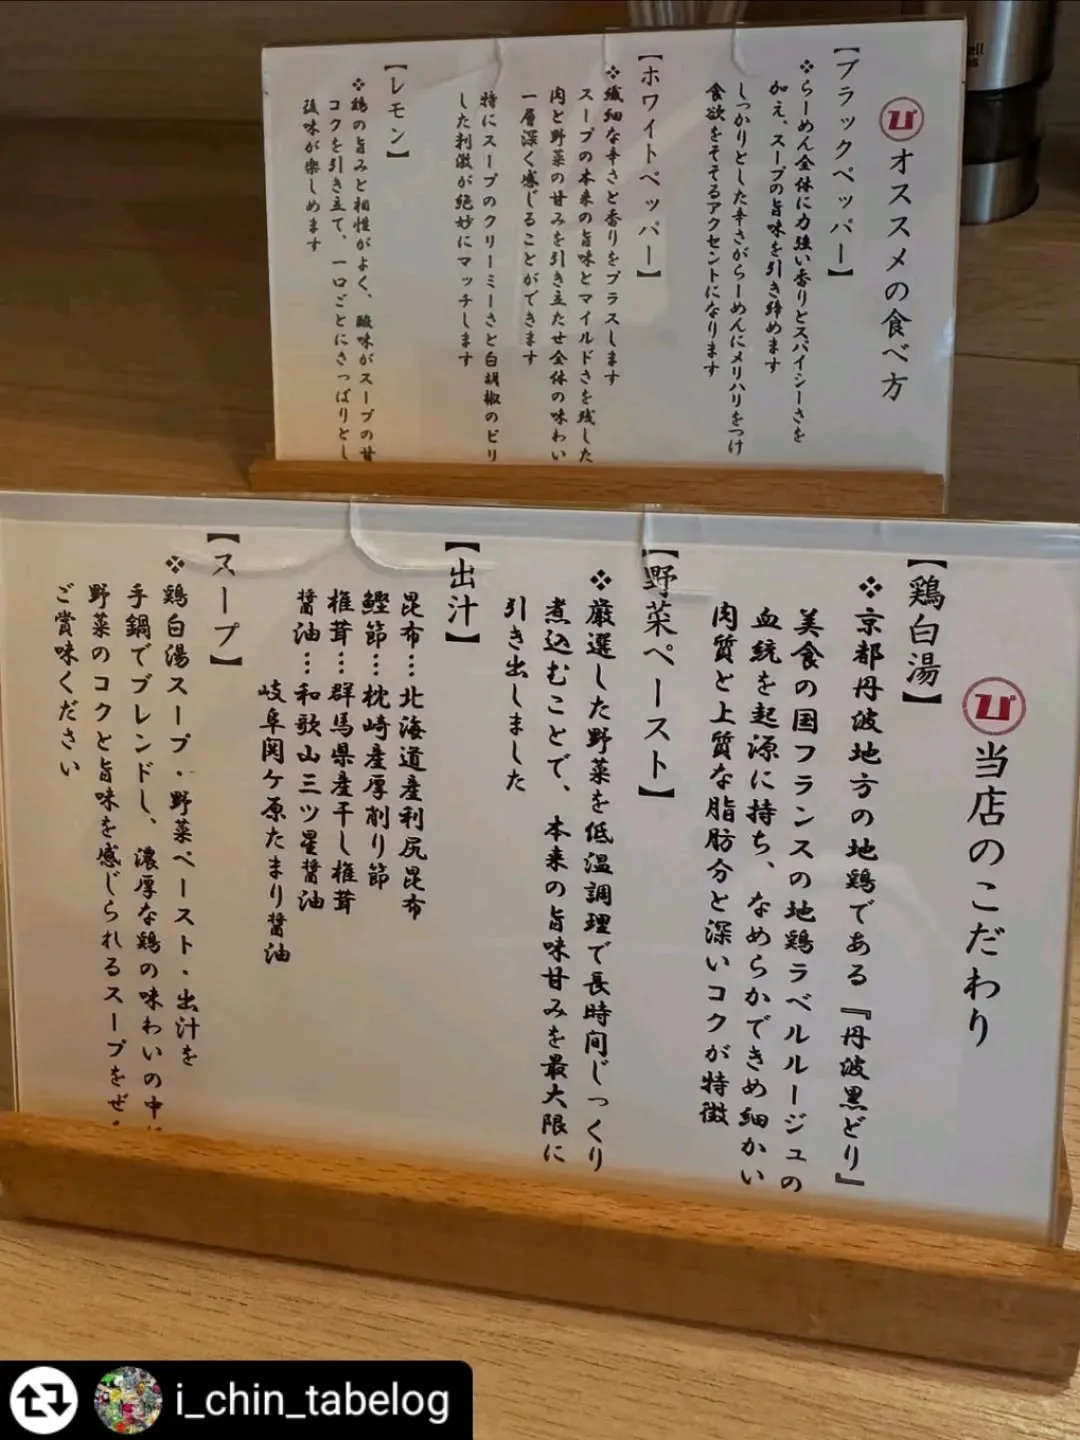 オススメの食べ方
【ブラックペッパー】
❖らーめん全体に力強い香りとスパイシーさを
加え、スープの旨味を引き締めます
しっかりとした辛さがらーめんにメリハリをつけ
食欲をそそるアクセントになります
【ホワイトペッパー】
❖繊細な辛さと香りをプラスします
スープの本来の旨味とマイルドさを残した
肉と野菜の甘みを引き立たせ全体の味わい
一層深く感じることができます
特にスープのクリーミーさと白胡椒のピリ
した刺激が絶妙にマッチします
【レモン】
❖鶏の旨みと相性がよく、酸味がスープの甘
コクを引き立て、一口ごとにさっぱりとし
後味が楽しめます
び
当店のこだわり
【鶏白湯】
❖京都丹波地方の地鶏である『丹波黒どり』
美食の国フランスの地鶏ラベルルージュの
血統を起源に持ち、なめらかできめ細かい
肉質と上質な脂肪分と深いコクが特徴
【野菜ペースト】
❖厳選した野菜を低温調理で長時間じっくり
煮込むことで、本来の旨味甘みを最大限に
引き出しました
【出汁】
昆布…北海道産利尻昆布
鰹節…枕崎産厚削り節
椎茸…群馬県産干し椎茸
醤油…和歌山三ツ星醤油
岐阜関ケ原たまり醤油
【スープ】
❖鶏白湯スープ・野菜ペースト・出汁を
手鍋でブレンドし、濃厚な鶏の味わいの中に
野菜のコクと旨味を感じられるスープをぜ
ご賞味ください
i_chin_tabelog